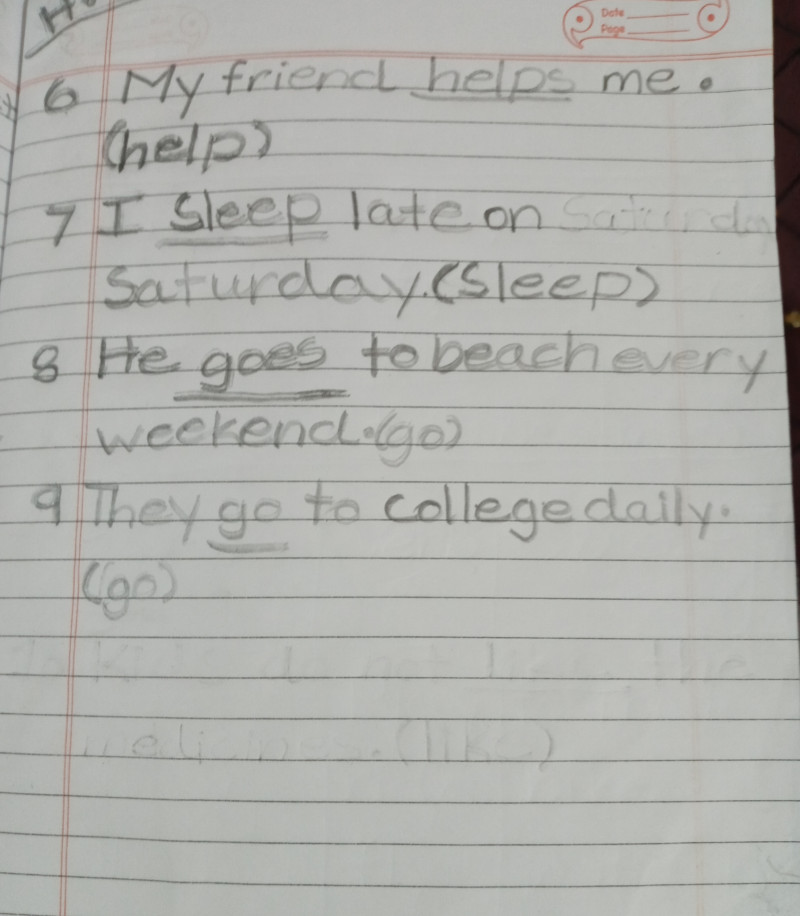 Date
Page
6 My friend helps me.
(help)
7 I sleep late on Saturday
Saturday.(sleep)
8 He goes to beach every
weekend.(go)
9 They go to college daily.
(go)
Kids do not the
medicines.(like)